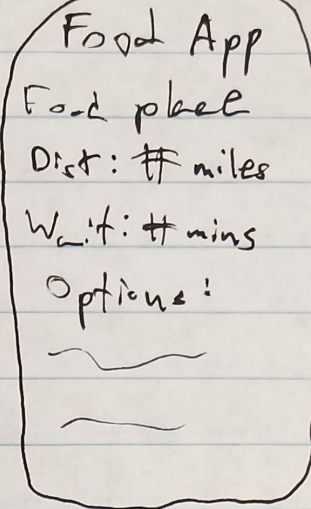 Food App
Food place
Dist: # miles
Wait: # mins
Options: